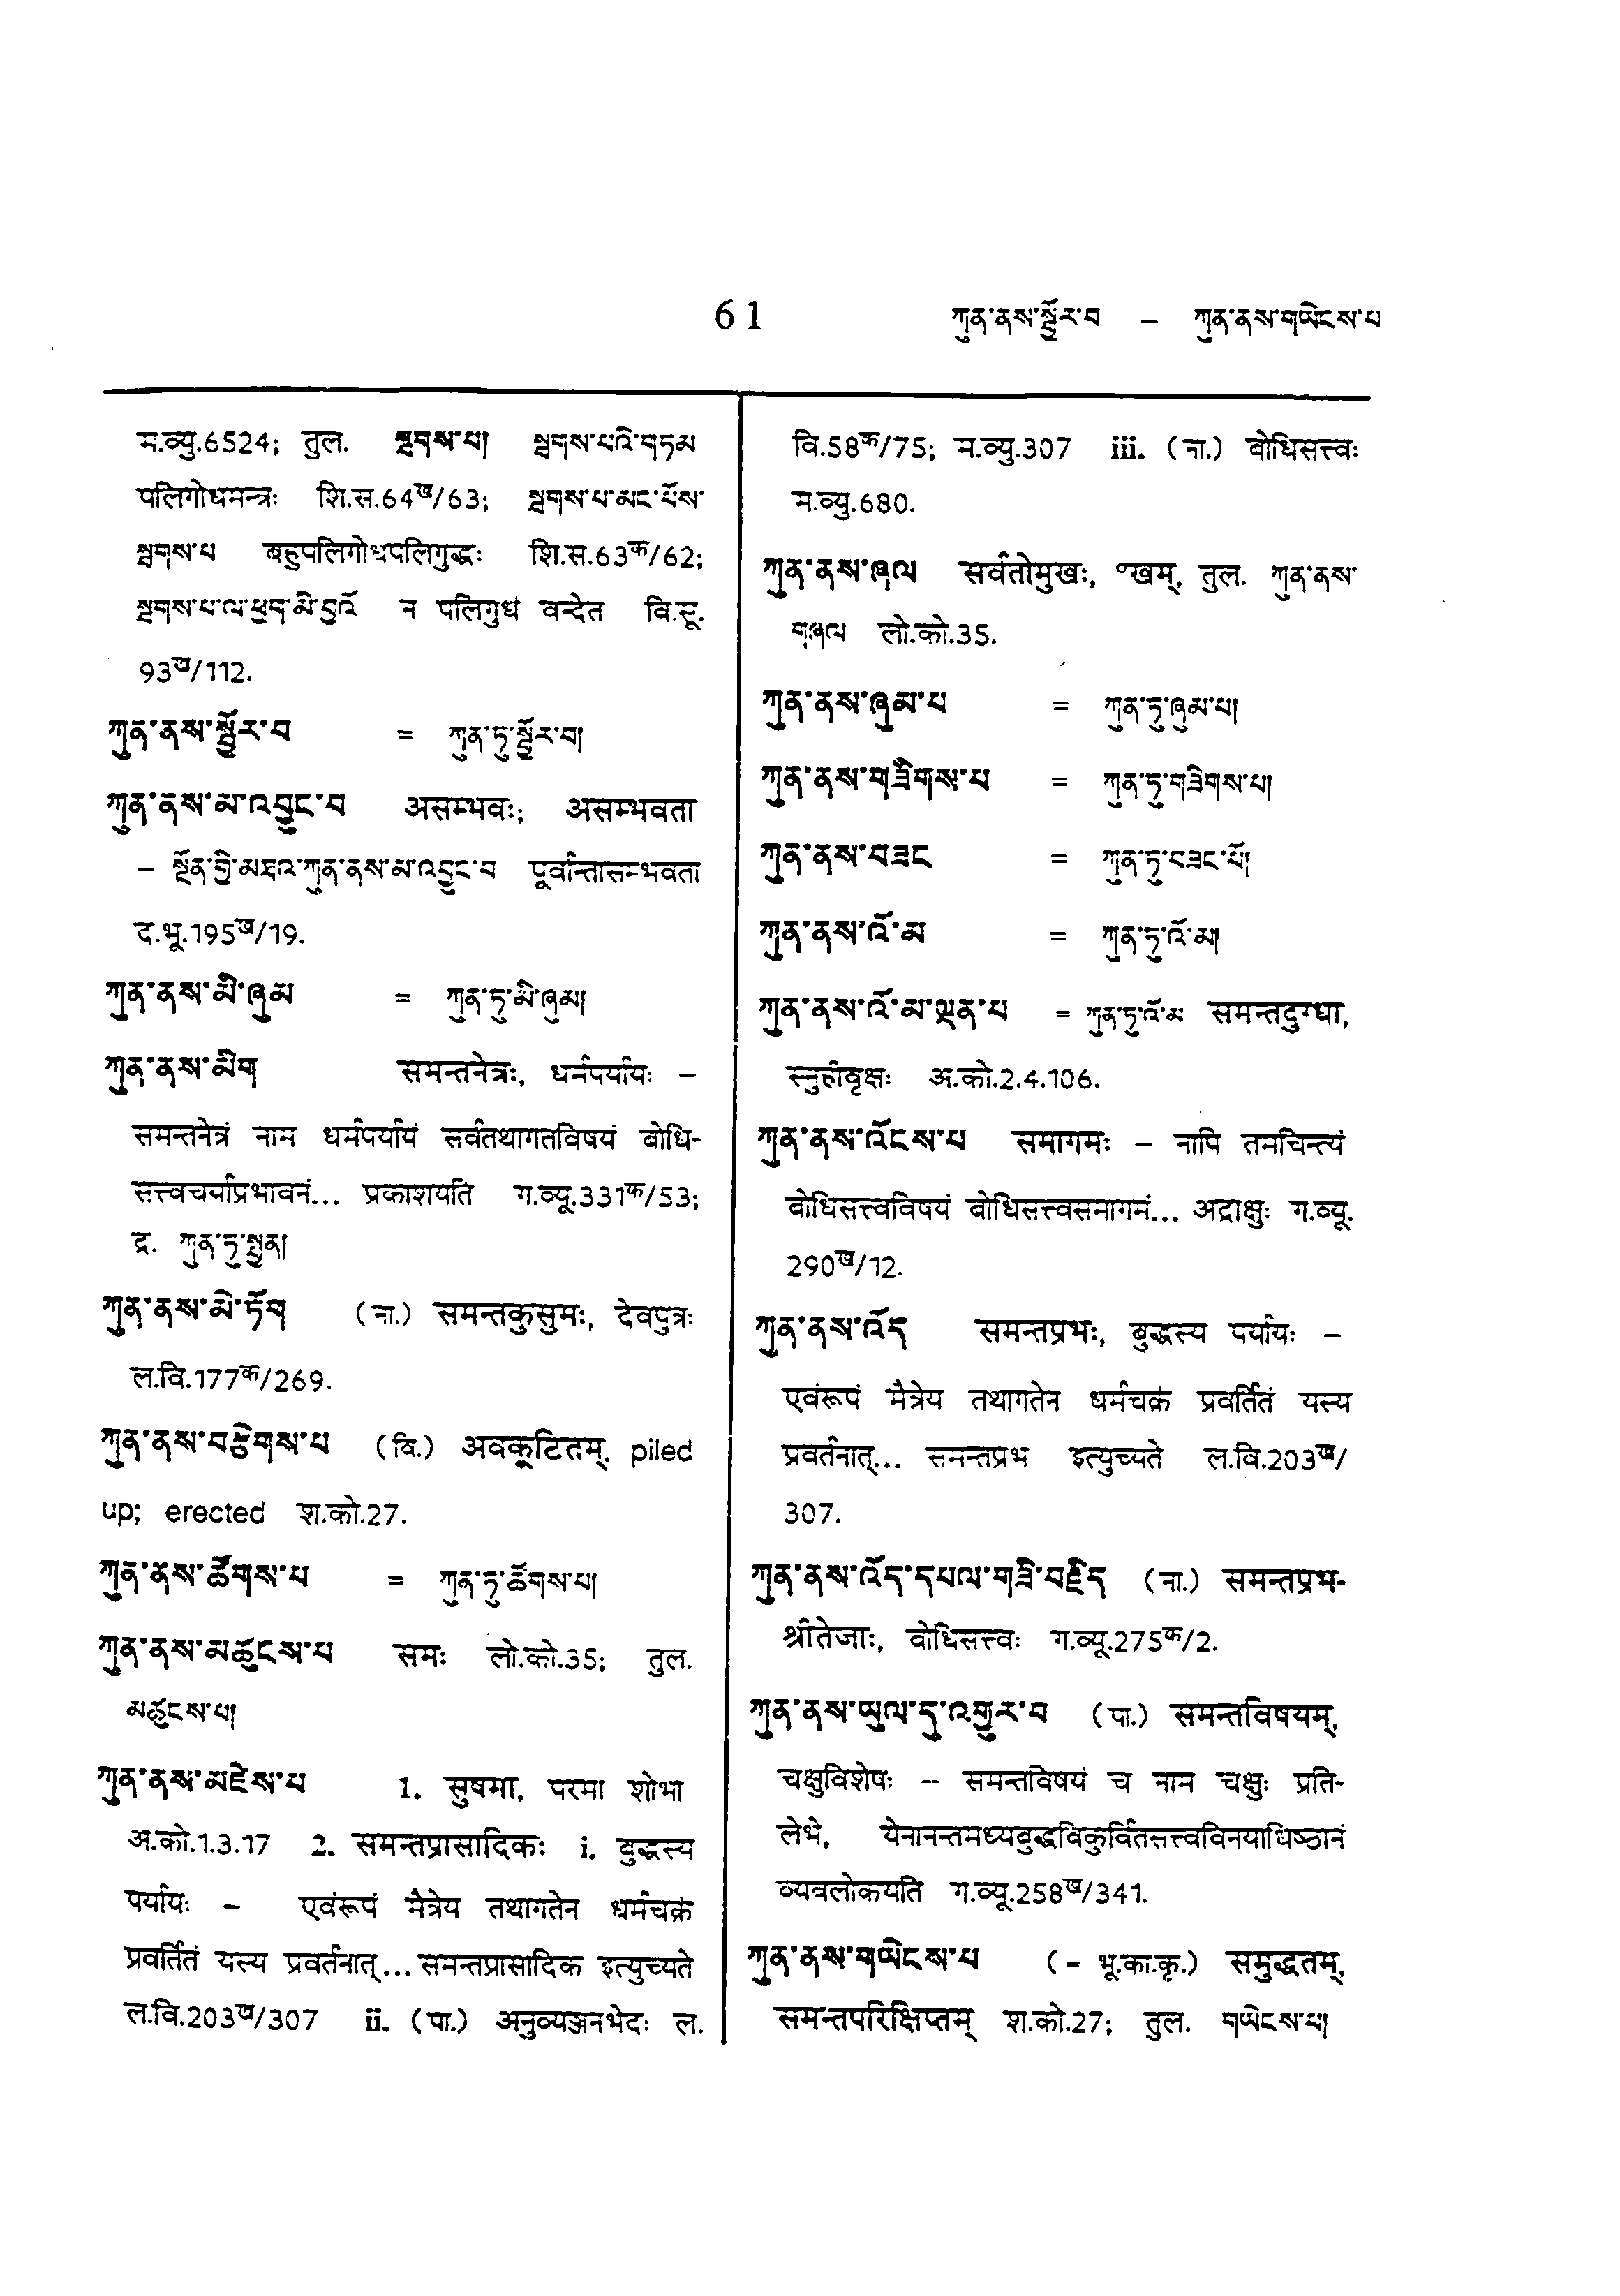 61 ཀུན་ནས་སྦྱོར་བ – ཀུན་ནས་གཡེངས་པ
म.व्यु.6524; तुल. སྦགས་པ། སྦགས་པའི་གཏམ
पलिगोधमन्त्रः शि.स.64ख/63; སྦགས་པ་མང་པོས་
སྦགས་པ बहुपलिगोधपलिगुद्धः शि.स.63क/62;
སྦགས་པ་ལ་ཕྱག་མི་བྱའོ न पलिगुधं वन्देत वि.सू.
93ख/112.
ཀུན་ནས་སྦྱོར་བ = ཀུན་ཏུ་སྦྱོར་བ།
ཀུན་ནས་མ་འབྱུང་བ असम्भवः; असम्भवता
– སྔོན་གྱི་མཐའ་ཀུན་ནས་མ་འབྱུང་བ पूर्वान्तासम्भवता
द.भू.195ख/19.
ཀུན་ནས་མི་ཞུམ = ཀུན་ཏུ་མི་ཞུམ།
ཀུན་ནས་མིག समन्तनेत्रः, धर्मपर्यायः –
समन्तनेत्रं नाम धर्मपर्यायं सर्वतथागतविषयं बोधि-
सत्त्वचर्याप्रभावनं... प्रकाशयति ग.व्यू.331क/53;
द्र. ཀུན་ཏུ་སྤྱན།
ཀུན་ནས་མེ་ཏོག (ना.) समन्तकुसुमः, देवपुत्रः
ल.वि.177क/269.
ཀུན་ནས་བརྩེགས་པ (वि.) अवकूटितम्, piled
up; erected श.को.27.
ཀུན་ནས་ཚོགས་པ = ཀུན་ཏུ་ཚོགས་པ།
ཀུན་ནས་མཚུངས་པ समः लो.को.35; तुल.
མཚུངས་པ།
ཀུན་ནས་མཛེས་པ 1. सुषमा, परमा शोभा
अ.को.1.3.17 2. समन्तप्रासादिकः i. बुद्धस्य
पर्यायः – एवंरूपं मैत्रेय तथागतेन धर्मचक्रं
प्रवर्तितं यस्य प्रवर्तनात्... समन्तप्रासादिक इत्युच्यते
ल.वि.203ख/307 ii. (पा.) अनुव्यञ्जनभेदः ल.
वि.58क/75; म.व्यु.307 iii. (ना.) बोधिसत्त्वः
म.व्यु.680.
ཀུན་ནས་ཞལ सर्वतोमुखः, ॰खम्, तुल. ཀུན་ནས་
གཞལ लो.को.35.
ཀུན་ནས་ཞུམ་པ = ཀུན་ཏུ་ཞུམ་པ།
ཀུན་ནས་གཟིགས་པ = ཀུན་ཏུ་གཟིགས་པ།
ཀུན་ནས་བཟང = ཀུན་ཏུ་བཟང་པོ།
ཀུན་ནས་འོ་མ = ཀུན་ཏུ་འོ་མ།
ཀུན་ནས་འོ་མ་ལྡན་པ = ཀུན་ཏུ་འོ་མ समन्तदुग्धा,
स्नुहीवृक्षः अ.को.2.4.106.
ཀུན་ནས་འོངས་པ समागमः – नापि तमचिन्त्यं
बोधिसत्त्वविषयं बोधिसत्त्वसमागमं... अद्राक्षुः ग.व्यू.
290ख/12.
ཀུན་ནས་འོད समन्तप्रभः, बुद्धस्य पर्यायः –
एवंरूपं मैत्रेय तथागतेन धर्मचक्रं प्रवर्तितं यस्य
प्रवर्तनात्... समन्तप्रभ इत्युच्यते ल.वि.203ख/
307.
ཀུན་ནས་འོད་དཔལ་གཟི་བརྗིད (ना.) समन्तप्रभ-
श्रीतेजाः, बोधिसत्त्वः ग.व्यू.275क/2.
ཀུན་ནས་ཡུལ་དུ་འགྱུར་བ (पा.) समन्तविषयम्,
चक्षुविशेषः – समन्तविषयं च नाम चक्षुः प्रति-
लेभे, येनानन्तमध्यबुद्धविकुर्वितसत्त्वविनयाधिष्ठानं
व्यवलोकयति ग.व्यू.258ख/341.
ཀུན་ནས་གཡེངས་པ (- भू.का.कृ.) समुद्धतम्,
समन्तपरिक्षिप्तम् श.को.27; तुल. གཡེངས་པ།